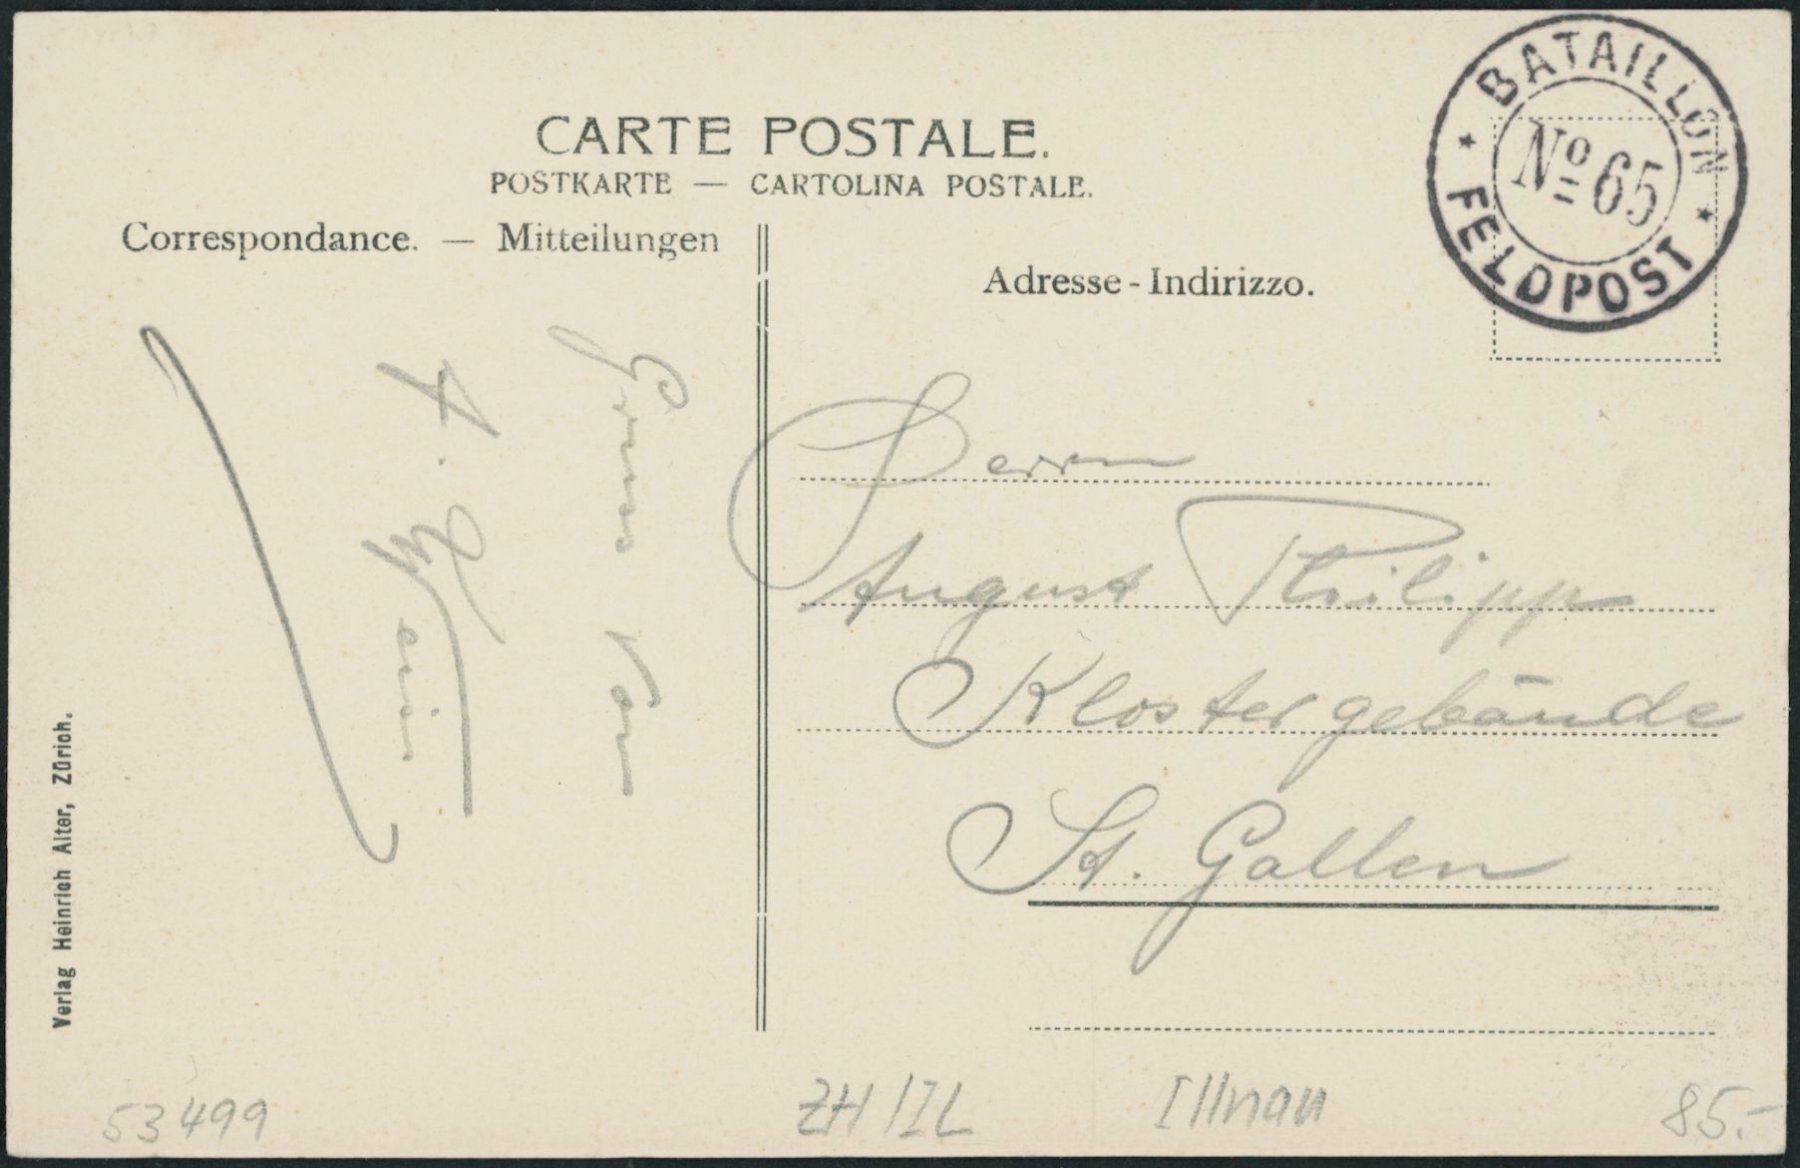 CARTE POSTALE.
POSTKARTE — CARTOLINA POSTALE.
Correspondance. — Mitteilungen
Adresse - Indirizzo.
BATAILLON
No 65
FELDPOST
Gruss von
A.
Herrn
August Philipp
Klostergebäude
St. Gallen
Verlag Heinrich Alter, Zürich.
53499
ZH / ZL
Illnau
85.-